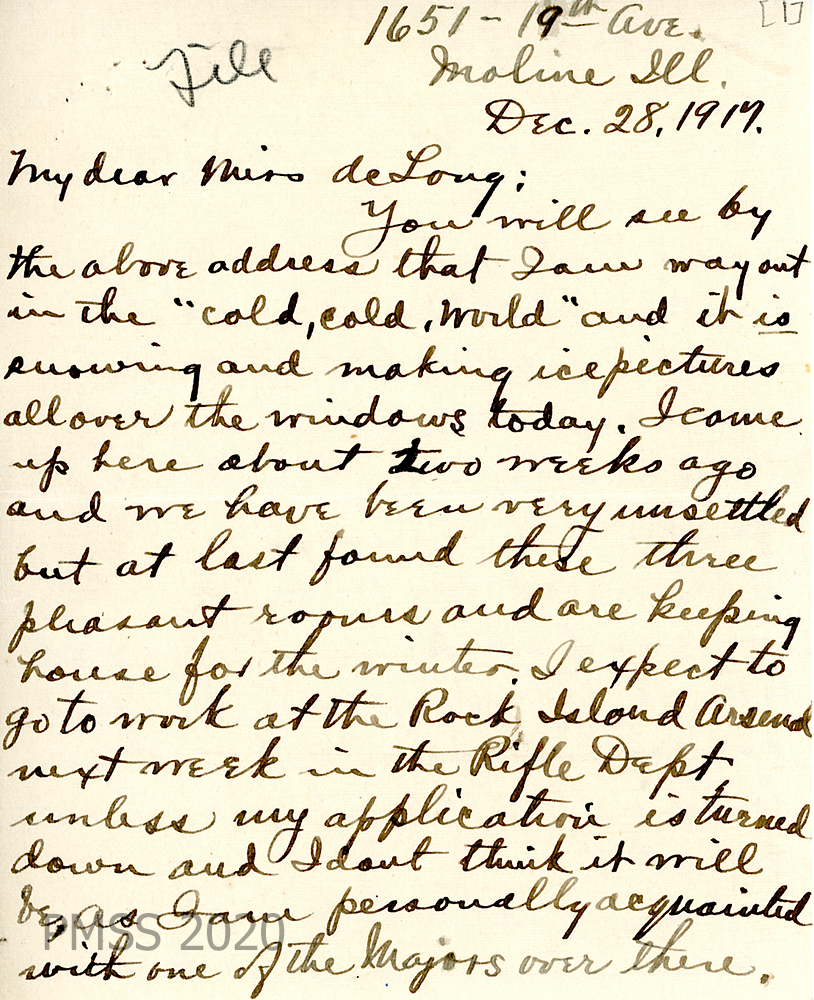 [1]
1651 - 19th Ave.
File
Moline Ill.
Dec. 28, 1917.
My dear Miss de Long;
You will see by
the above address that I am way out
in the "cold, cold, world" and it is
snowing and making ice pictures
all over the windows today. I come
up here about two weeks ago
and we have been very unsettled
but at last found these three
pleasant rooms and are keeping
house for the winter. I expect to
go to work at the Rock Island Arsenal
next week in the Rifle Dept,
unless my application is turned
down and I dont think it will
be, as I am personally acquainted
with one of the Majors over there.
PMSS 2020